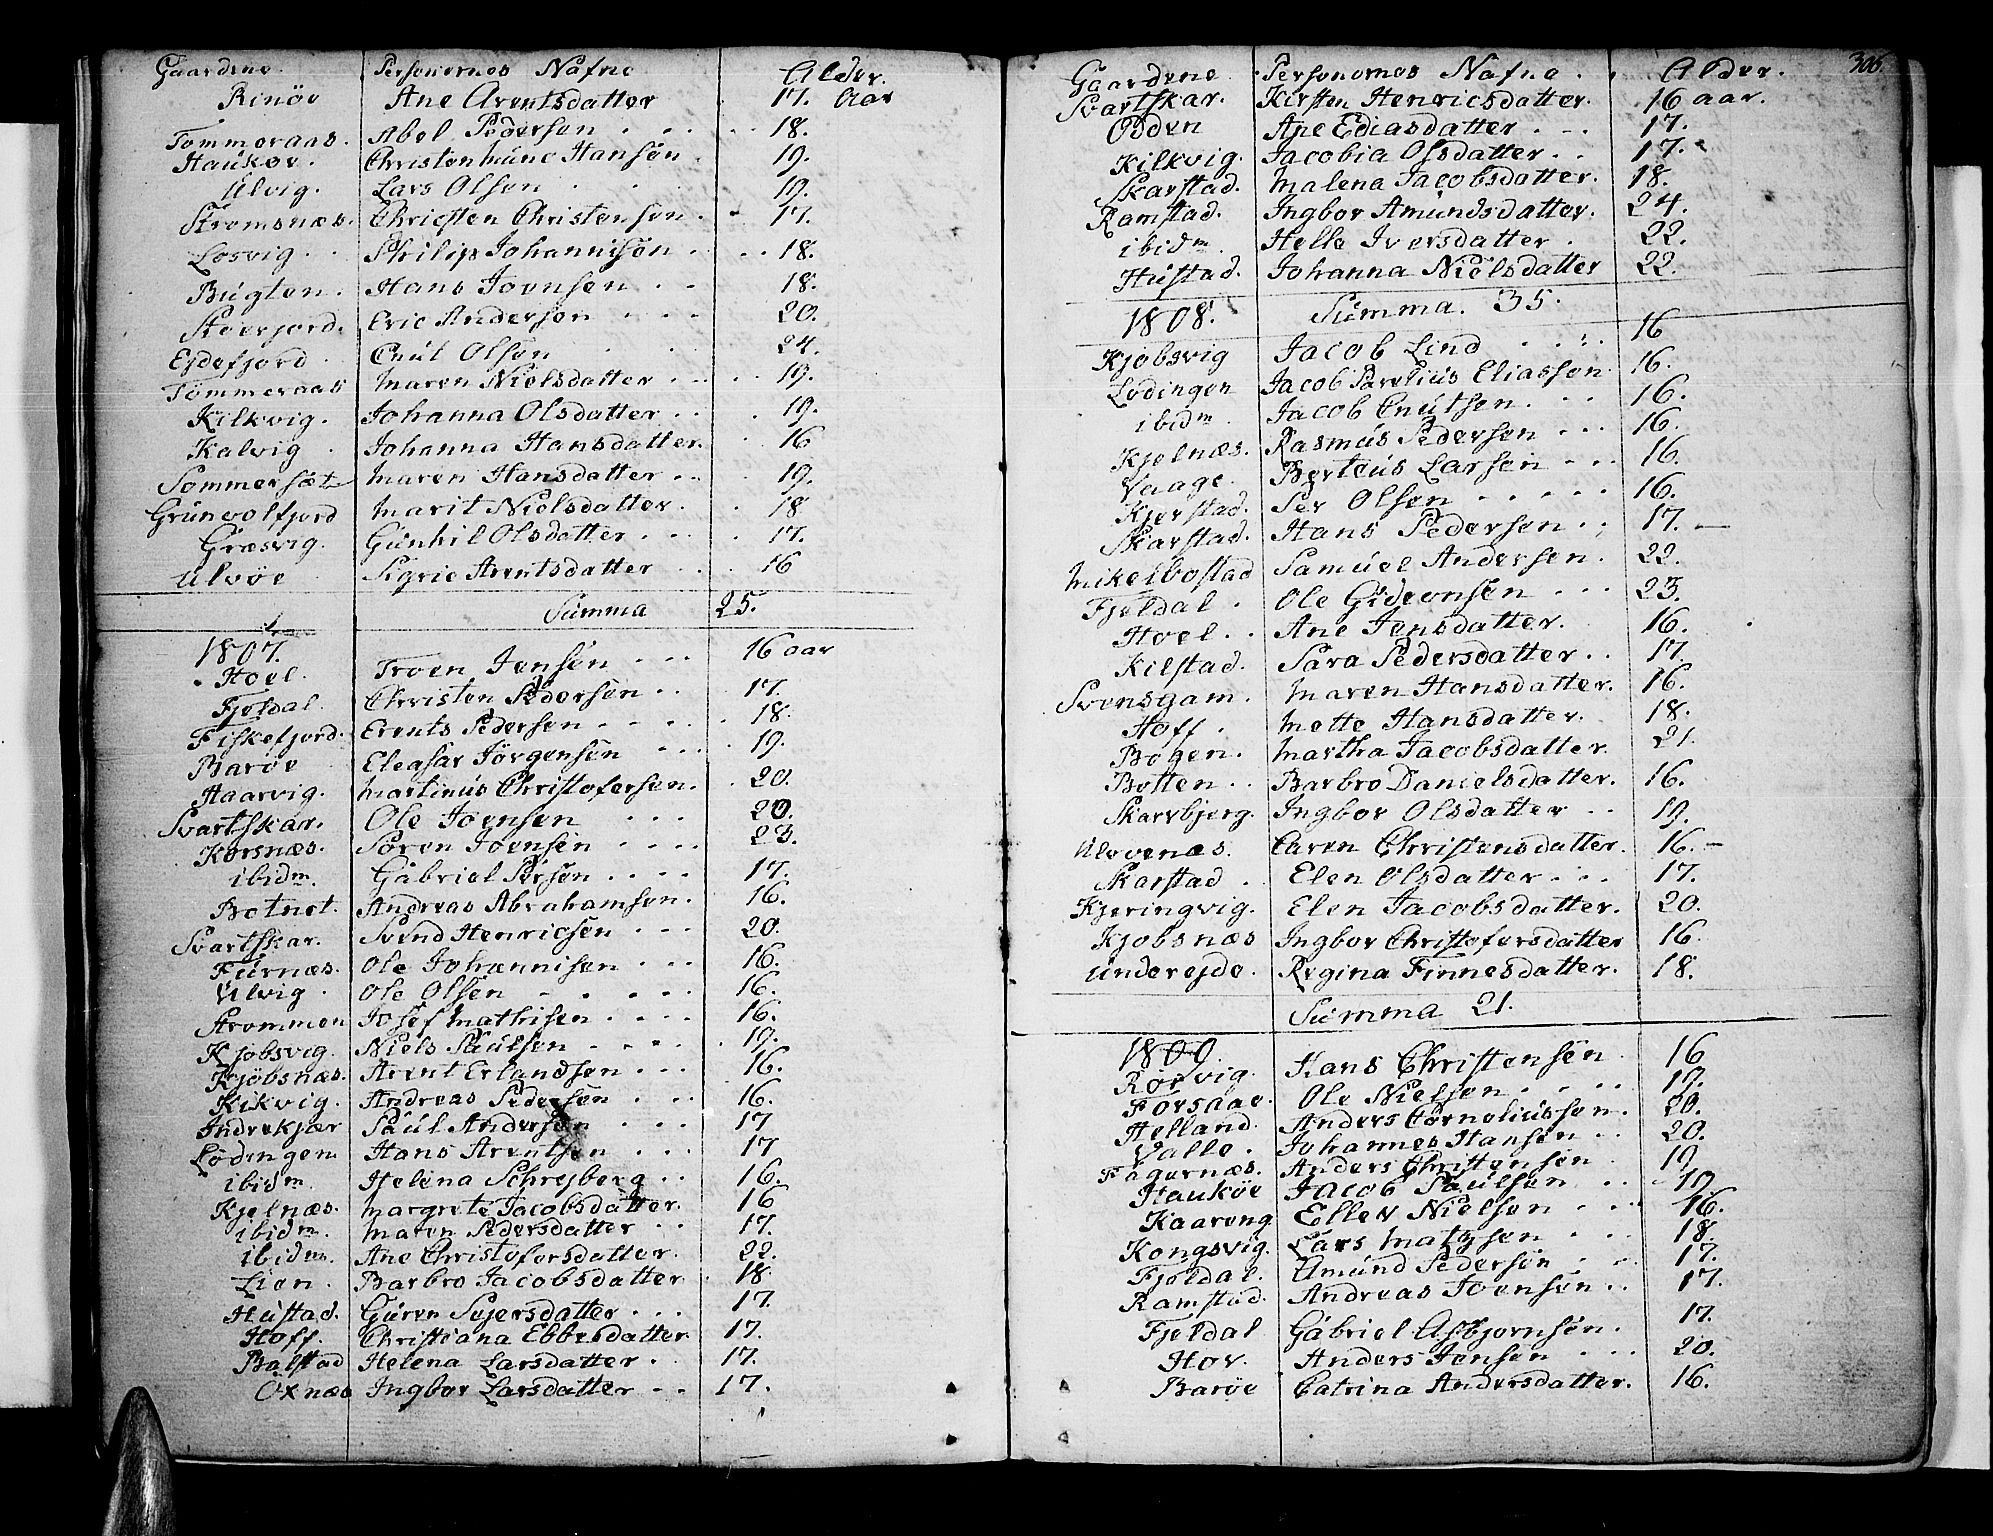 Gaardene. Personernes Nafne Alder.
Rinöe Ane Arentsdatter 17. Aar
Tommeraas. Abel Pedersen 18.
Haukøe. Christen Munc Hansen. 19.
Ulvig. Lars Olsen 19.
Stromsnæs. Christen Christensen. 17.
Losvig. Philip Johannisön 18.
Bugten. Hans Joensen 18.
Stoerfjord. Eric Andersen 20.
Ejdefjord. Cnut Olsen 24.
Tömmeraas Maren Nielsdatter 19.
Kilkvig. Johanna Olsdatter 19.
Kalvig Johanna Hansdatter. 16
Sommersæt Maren Hansdatter 19.
Grunvolfjord Marit Nielsdatter. 18
Græsvig. Gunhil Olsdatter 17.
Ulvöe Sigrie Arentsdatter 16
Summa 25.
1807.
Hoel. Troen Jensen 16 aar
Fjeldal. Christen Pedersen 17.
Fiskefjord. Erents Pedersen 18.
Baröe Eleasar Jörgensen 19.
Haarvig. Martinus Christofersen. 20.
Svartskar. Ole Joensen 20.
Korsnæs. Sören Joensen 23.
ibidm. Gabriel Persen 17.
Botnet. Andreas Abrahamsen. 16.
Svartskar. Svend Henricsen 20.
Furnæs. Ole Johannisen 16.
Ulvig Ole Olsen 16.
Strommen Josef Mathisen 16.
Kjobsvig. Niels Paulsen 19.
Kjöbsnæs. Arent Erlandsen 16.
Kikvig. Andreas Pedersen 16.
Indrekjær Paul Andersen 17
Lödingen Hans Arentsen 17
ibidm. Helena Schrejberg 16.
Kjelnæs. Margrete Jacobsdatter. 16
ibidm. Maren Pedersdatter 17.
ibidm Ane Christofersdatter. 22.
Lien. Barbro Jacobsdatter 18.
Hustad. Guren Sejersdatter 17.
Hoff. Christiana Ebbesdatter 17.
Balstad Helena Larsdatter 17.
Oxnæs Ingbor Larsdatter 17.
306.
Gaardene Personernes Nafne. Alder.
Svartskar. Kirsten Henricsdatter. 16 aar.
Odden Ane Ediasdatter 17.
Kilkvig. Jacobia Olsdatter 17.
Skarstad. Malena Jacobsdatter. 18.
Ramstad. Ingbor Amundsdatter. 24.
ibidm. Helle Iversdatter 22.
Hustad. Johanna Nielsdatter 22.
1808. Summa. 35.
Kjobsvig Jacob Lind 16
Lodingen Jacob Parelius Eliassen 16.
ibidm. Jacob Cnutsen. 16.
Kjelnæs. Rasmus Pedersen 16.
Vaage. Berteus Larsen 16.
Kjerstad. Per Olsen 16.
Skarstad. Hans Pedersen 17.
Mikelbostad Samuel Andersen. 22.
Fjeldal. Ole Gideonsen 23.
Hoel. Ane Jensdatter. 16.
Kilstad. Sara Pedersdatter 17.
Svensgam. Maren Hansdatter. 16.
Hoff. Mette Hansdatter. 18.
Bogen. Martha Jacobsdatter. 21.
Botten Barbro Danielsdatter. 16.
Skarvbjerg. Ingbor Olsdatter 19.
Ulvenæs. Caren Christensdatter. 16.
Skarstad Elen Olsdatter 17.
Kjeringvig. Elen Jacobsdatter. 20.
Kjobsnæs Ingbor Christofersdatter 16.
Underejde. Regina Finnesdatter. 18.
Summa 21.
1809
Rörvig. Hans Christensen 16
Forsaae. Ole Nielsen 19.
Helland. Anders Corneliussen. 20.
Valle. Johannes Hansen 20.
Fagernæs. Anders Christensen 19
Hauköe Jacob Paulsen 19.
Kaareng Eller Nielsen 16.
Kongsvig. Lars Mathsen 18.
Fjeldal. Amund Pedersen 17.
Ramstad Andreas Joensen 17.
Fjeldal Gabriel Asbjornsön. 17.
Hov. Anders Jensen 20.
Baröe Catrina Andersdatter. 16.